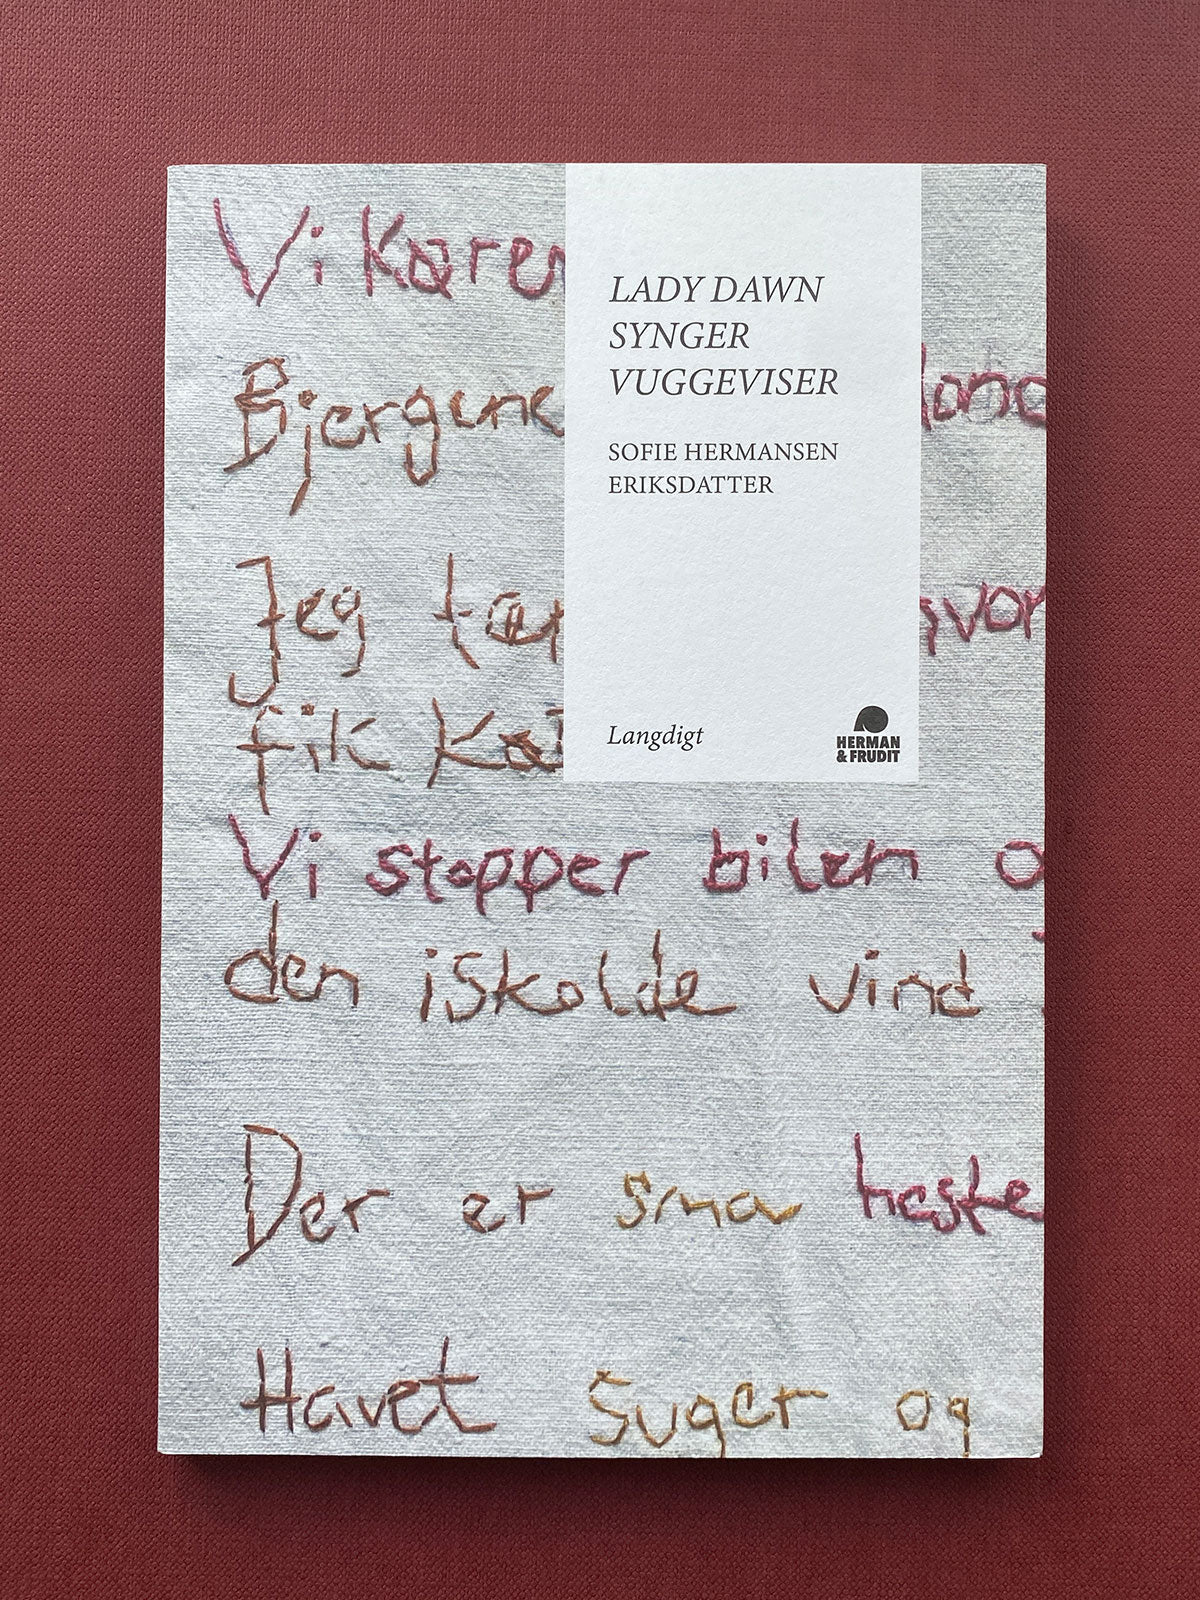 Vi
Bjergene
Jeg
fik
Vi stopper bilen
den iskolde vind
Der er små heste
Havet suger og
LADY DAWN
SYNGER
VUGGEVISER
SOFIE HERMANSEN
ERIKSDATTER
Langdigt
HERMAN
& FRUDIT